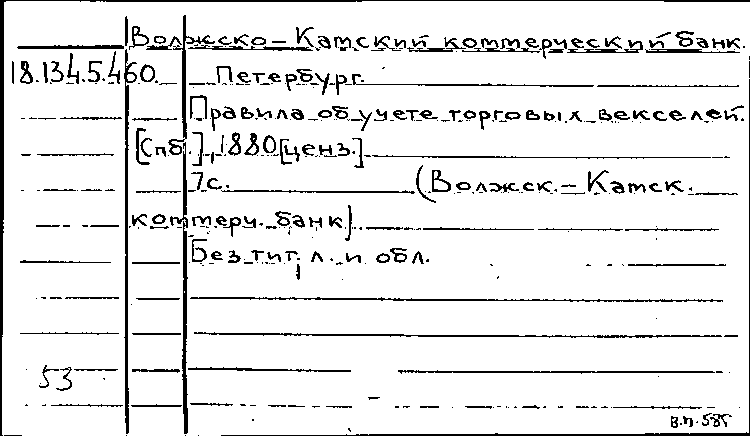 Волжско-Катский коттерческий банк.
18.134.5.460. Петербург.
Правила об учете торговых векселей.
[Спб.], 1880 [ценз.]
7с. (Волжск.-Катск.
коттерч. банк).
Без тит. л. и обл.
53
В.п. 585